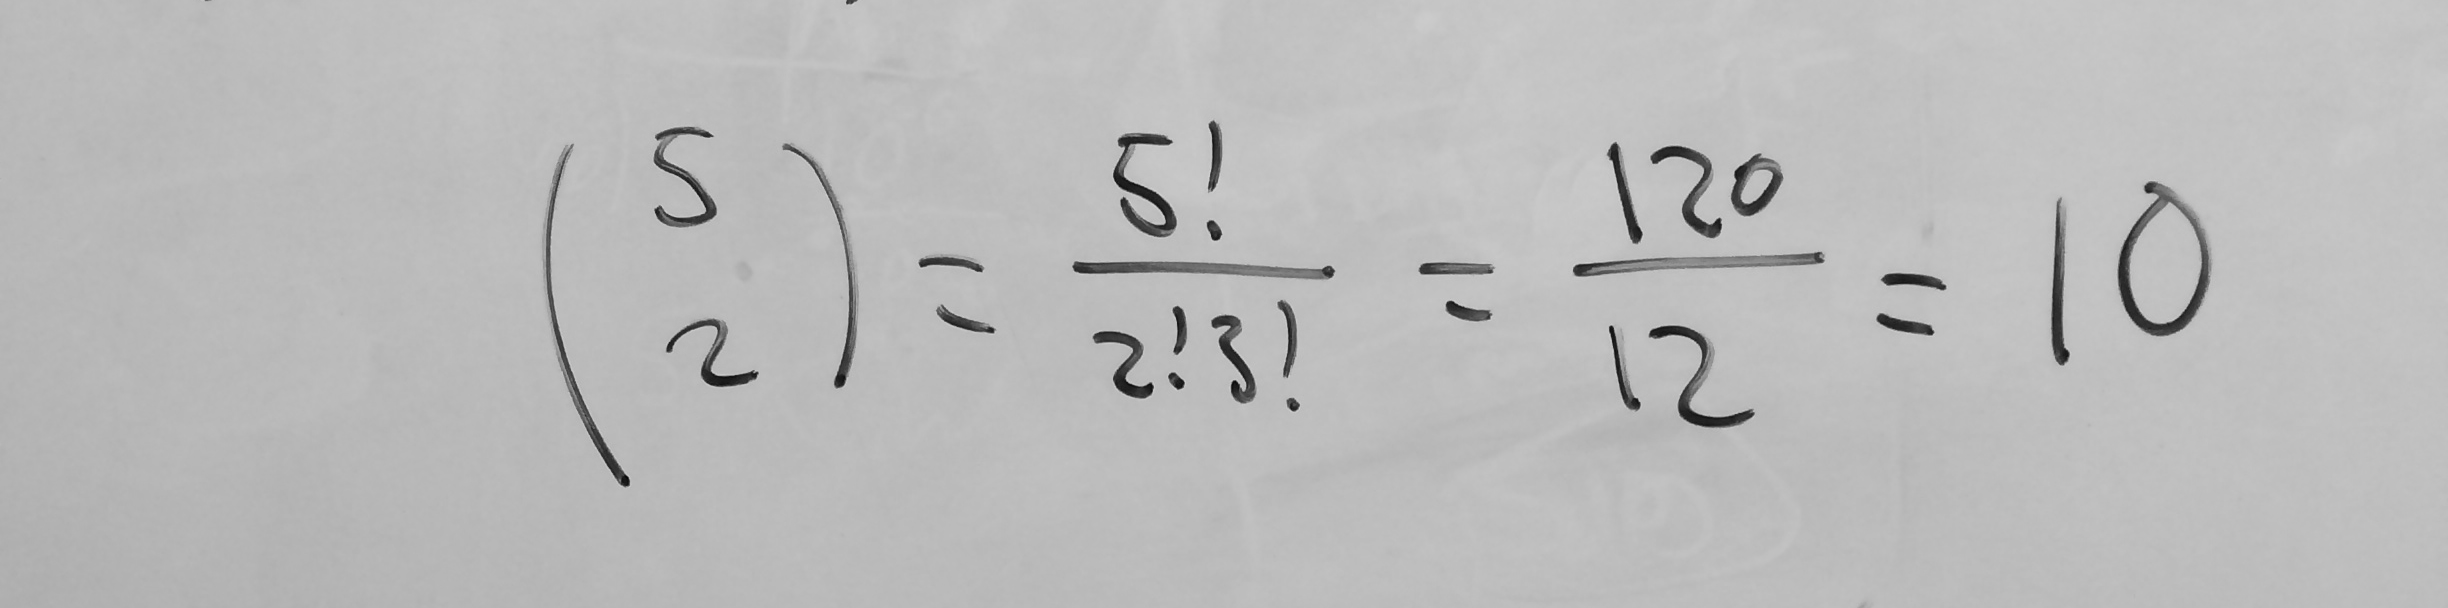 (5 2) = 5!/2!3! = 120/12 = 10